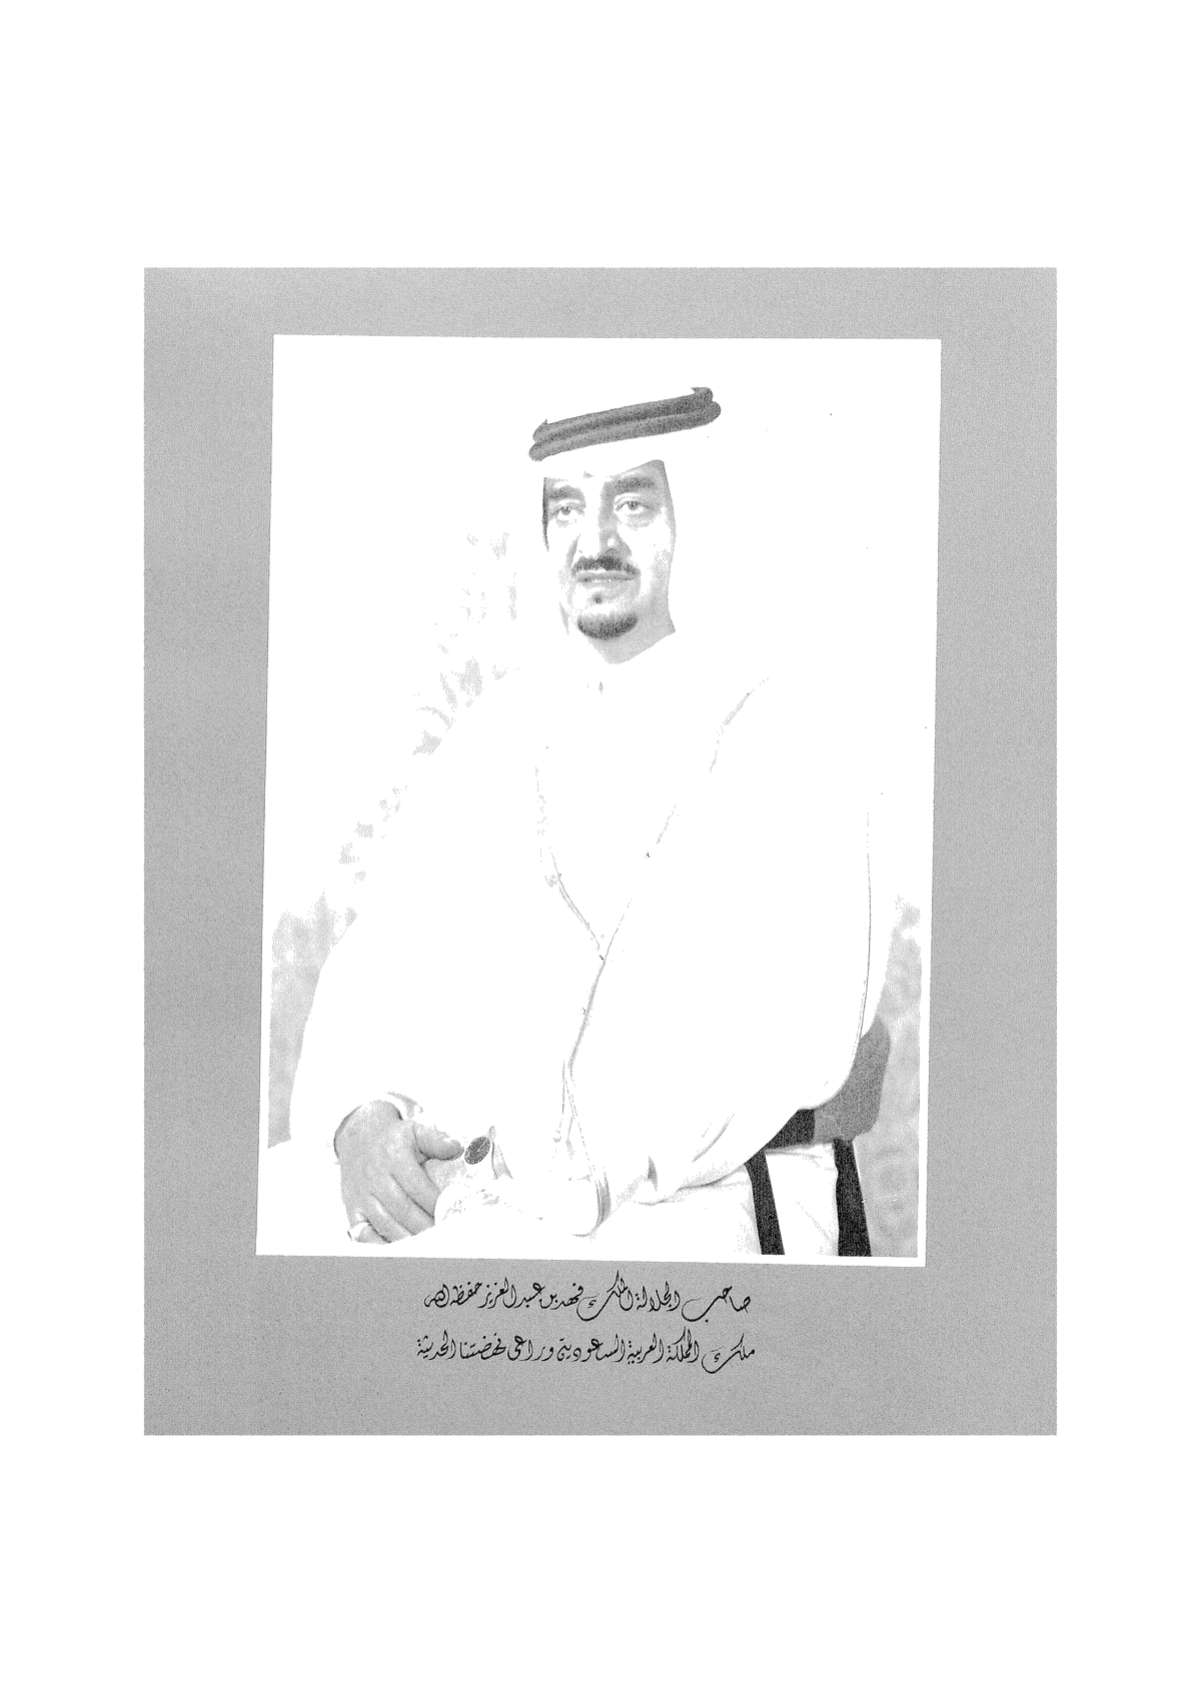 صاحب الجلالة الملك فهد بن عبد العزيز حفظه الله
ملك المملكة العربية السعودية وراعى نهضتنا الحديثة